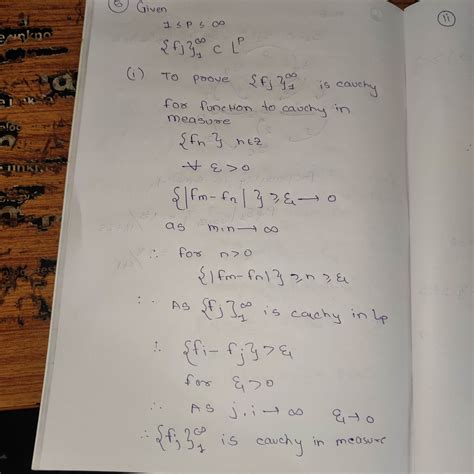 ⑧ Given
1 ≤ P ≤ ∞
{fj}₁^∞ ⊂ L^P
(i) To prove {fj}₁^∞ is cauchy
for function to cauchy in
measure
{fn} n∈z
∀ ε>0
{|fm-fn|} ≥ ε → 0
as m,n → ∞
∴ for n>0
{|fm-fn|} ≥ n ≥ ε
∴ As {fj}₁^∞ is cauchy in Lp
∴ {fi - fj} > ε
for ε>0
∴ As j,i → ∞ ε→0
∴ {fj}₁^∞ is cauchy in measure
11